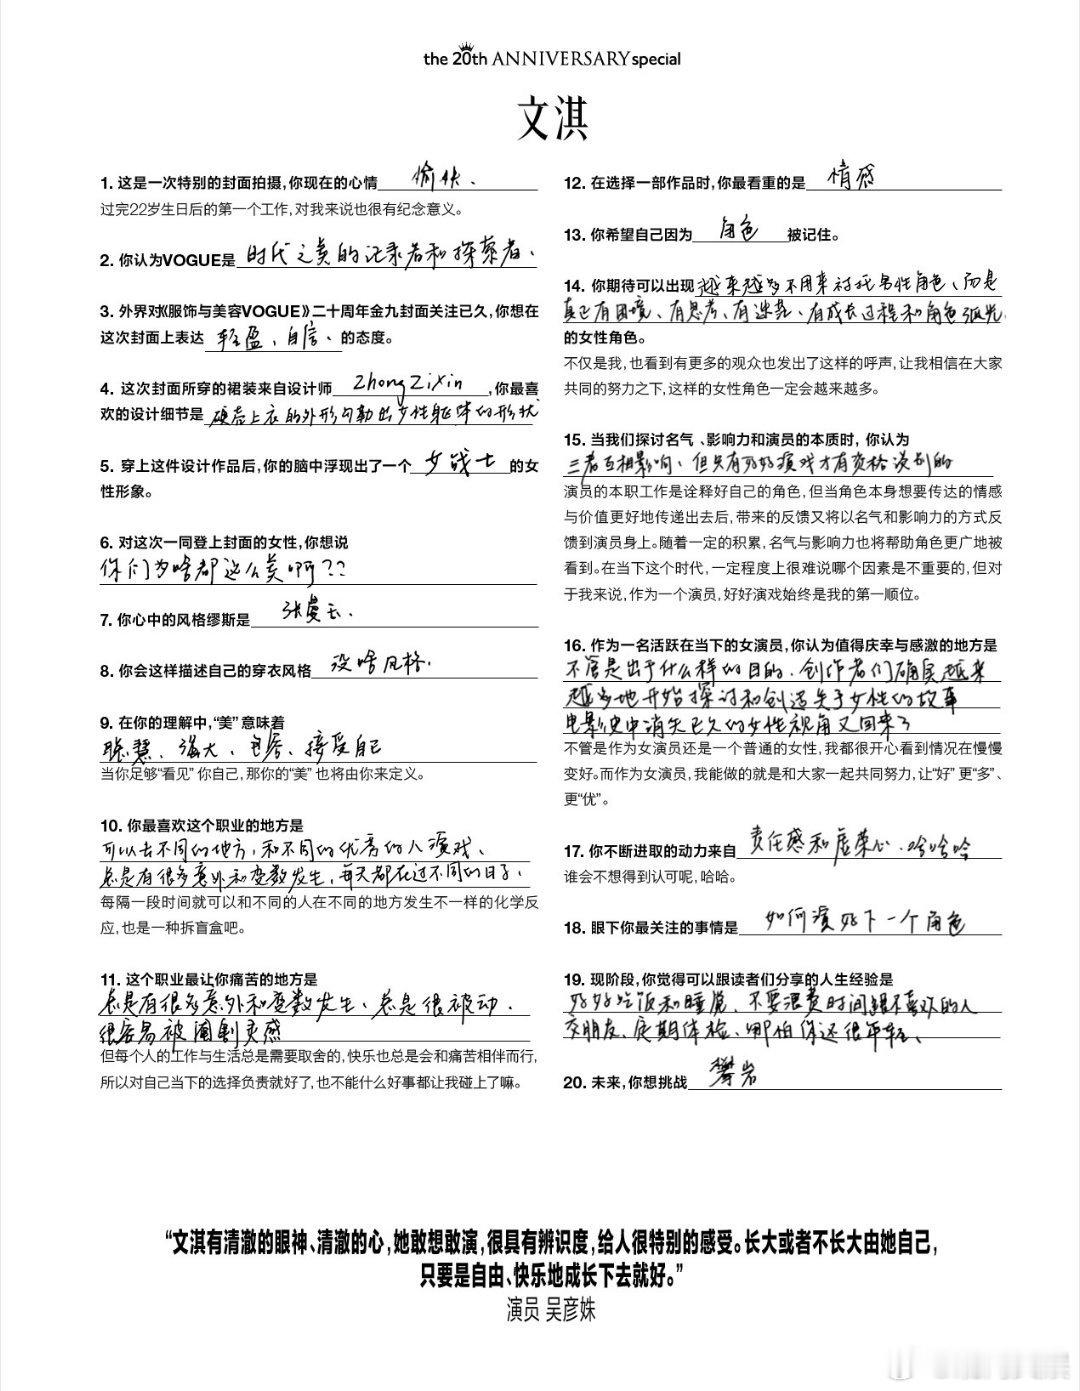 the 20th ANNIVERSARY special
文淇
1. 这是一次特别的封面拍摄,你现在的心情 愉快、
过完22岁生日后的第一个工作,对我来说也很有纪念意义。
2. 你认为VOGUE是 时代之美的记录者和探索者、
3. 外界对《服饰与美容VOGUE》二十周年金九封面关注已久,你想在
这次封面上表达 轻盈、自信、 的态度。
4. 这次封面所穿的裙装来自设计师 Zhong Zixin ,你最喜
欢的设计细节是 硬壳上衣的外形勾勒出女性躯体的形状
5. 穿上这件设计作品后,你的脑中浮现出了一个 女战士 的女
性形象。
6. 对这次一同登上封面的女性,你想说
你们为啥都这么美啊??
7. 你心中的风格缪斯是 张曼玉.
8. 你会这样描述自己的穿衣风格 没啥风格.
9. 在你的理解中,“美”意味着
聪慧、强大、包容、接受自己
当你足够“看见”你自己,那你的“美”也将由你来定义。
10. 你最喜欢这个职业的地方是
可以去不同的地方,和不同的优秀的人演戏、
总是有很多意外和变数发生,每天都在过不同的日子.
每隔一段时间就可以和不同的人在不同的地方发生不一样的化学反
应,也是一种拆盲盒吧。
11. 这个职业最让你痛苦的地方是
总是有很多意外和变数发生、总是很被动.
很容易被阉割灵感
但每个人的工作与生活总是需要取舍的,快乐也总是会和痛苦相伴而行,
所以对自己当下的选择负责就好了,也不能什么好事都让我碰上了嘛。
12. 在选择一部作品时,你最看重的是 情感
13. 你希望自己因为 角色 被记住。
14. 你期待可以出现 越来越多不用来衬托男性角色、而是
真正有困境、有思考、有迷茫、有成长过程和角色弧光
的女性角色。
不仅是我,也看到有更多的观众也发出了这样的呼声,让我相信在大家
共同的努力之下,这样的女性角色一定会越来越多。
15. 当我们探讨名气、影响力和演员的本质时,你认为
三者互相影响、但只有好好演戏才有资格谈别的
演员的本职工作是诠释好自己的角色,但当角色本身想要传达的情感
与价值更好地传递出去后,带来的反馈又将以名气和影响力的方式反
馈到演员身上。随着一定的积累,名气与影响力也将帮助角色更广地被
看到。在当下这个时代,一定程度上很难说哪个因素是不重要的,但对
于我来说,作为一个演员,好好演戏始终是我的第一顺位。
16. 作为一名活跃在当下的女演员,你认为值得庆幸与感激的地方是
不管是出于什么样的目的.创作者们确实越来
越多地开始探讨和创造关于女性的故事
电影史中消失已久的女性视角又回来了
不管是作为女演员还是一个普通的女性,我都很开心看到情况在慢慢
变好。而作为女演员,我能做的就是和大家一起共同努力,让“好”更“多”、
更“优”。
17. 你不断进取的动力来自 责任感和虚荣心.哈哈哈
谁会不想得到认可呢,哈哈。
18. 眼下你最关注的事情是 如何演好下一个角色
19. 现阶段,你觉得可以跟读者们分享的人生经验是
好好吃饭和睡觉、不要浪费时间跟不喜欢的人
交朋友、定期体检、哪怕你还很年轻、
20. 未来,你想挑战 攀岩
“文淇有清澈的眼神、清澈的心,她敢想敢演,很具有辨识度,给人很特别的感受。长大或者不长大由她自己,
只要是自由、快乐地成长下去就好。”
演员 吴彦姝